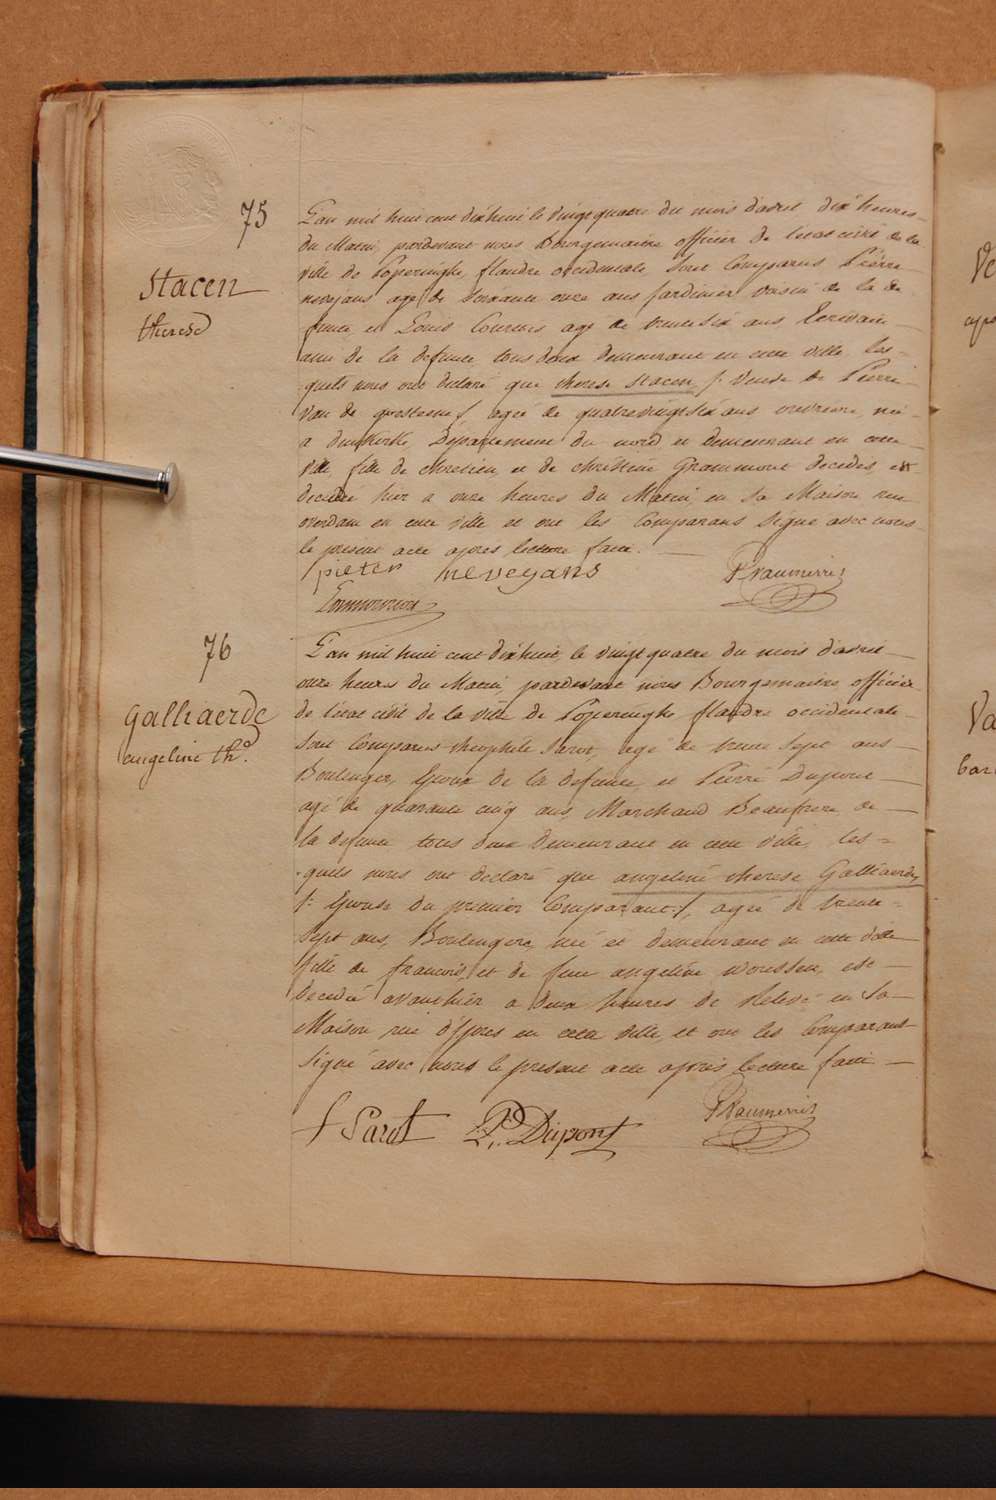 75
Stacen
therese
L'an mil huit cent dix huit le vingt quatre du mois d'avril dix heures
du Matin pardevant nous Bourgemaitre officier de l'etat civil de la
ville de Poperinghe flandre occidentale sont Comparus Pierre
nevejans agé de soixante onze ans Jardinier voisin de la de
funte et Louis agé de trente six ans Ecrivain
ami de la defunte tous deux demeurant en cette ville les-
quels nous ont declaré que therese stacen /: veuve de Pierre
Van de agée de quatrevingt six ans ouvriere, née
a dunkerke, Département du nord et demeurant en cette
ville, fille de chretien, et de christine Grammont decedés, est
decedée hier a onze heures du Matin, en sa Maison rue
overdam en cette ville et ont les Comparans signé avec nous
le present acte apres lecture faite.
pieter neveyans
76
Gallhaerde
angeline th.e
L'an mil huit cent dix huit, le vingt quatre du mois d'avril
onze heures du Matin, pardevant nous Bourgemaitre officier
de l'etat civil de la ville de Poperinghe flandre occidentale
sont Comparus theophile Sarot agé de trente sept ans
Boulenger, Epoux de la defunte, et Pierre Dupont
agé de quarante cinq ans, Marchand Beaufrere de
la defunte tous deux demeurant en cette ville, les=
quels nous ont declaré que angeline therese Gallhaerde,
/: Epouse du premier Comparant :/, agée de trente=
sept ans, Boulengere, née et demeurant en cette ville
fille de francois, et de feue angeline est
decedée avanthier a deux heures de relevé en sa
Maison rue d'Ypres en cette ville, et ont les Comparans
signé avec nous le present acte après lecture faite
T Sarot P. Dupont